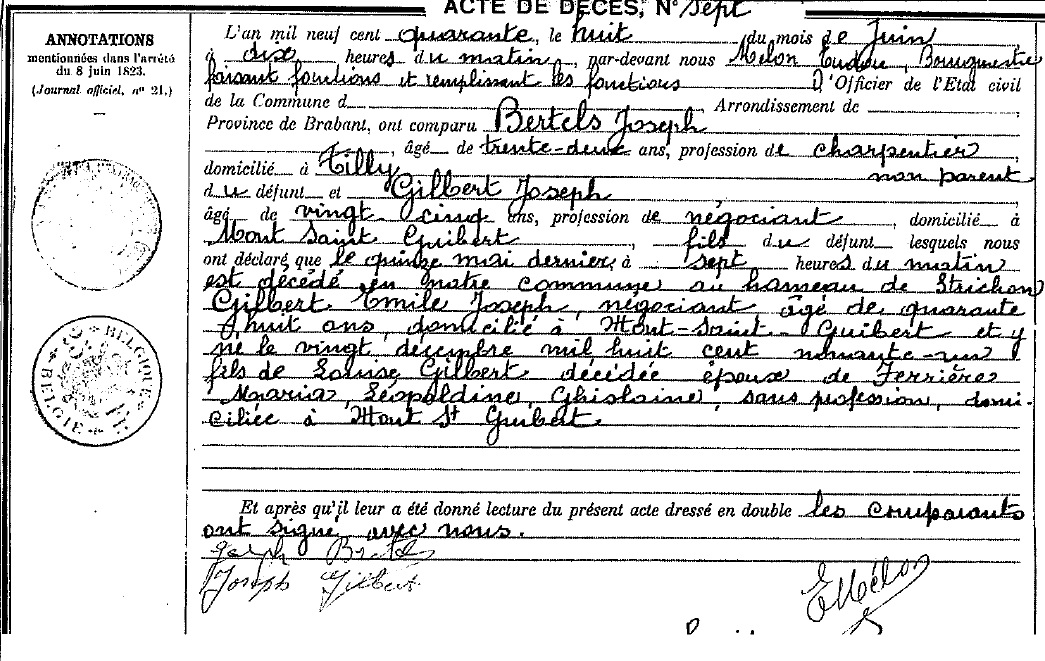 ACTE DE DÉCÈS, N° sept
ANNOTATIONS
mentionnées dans l'arrêté
du 8 juin 1823.
(Journal officiel, n° 21.)
BELGIQUE
BELGIE
L'an mil neuf cent quarante, le huit du mois de Juin
à dix heures du matin, par-devant nous Mélon Bourgmestre
faisant fonctions et remplissant les fonctions d'Officier de l'Etat civil
de la Commune d Arrondissement de
Province de Brabant, ont comparu Bertels Joseph
âgé de trente-deux ans, profession de charpentier,
domicilié à Tilly non parent
du défunt et Gilbert Joseph
âgé de vingt cinq ans, profession de négociant, domicilié à
Mont Saint Guibert, fils du défunt lesquels nous
ont déclaré que le quinze mai dernier, à sept heures du matin
est décédé en notre commune au hameau de Strichon
Gilbert Emile Joseph, négociant âgé de quarante
huit ans, domicilié à Mont-Saint-Guibert et y
né le vingt décembre mil huit cent nonante-un,
fils de Louise Gilbert décédée époux de Ferrière
Maria, Léopoldine, Ghislaine, sans profession, domi-
ciliée à Mont St Guibert.
Et après qu'il leur a été donné lecture du présent acte dressé en double les comparants
ont signé avec nous.
Joseph Bertels
Joseph Gilbert
E Mélon